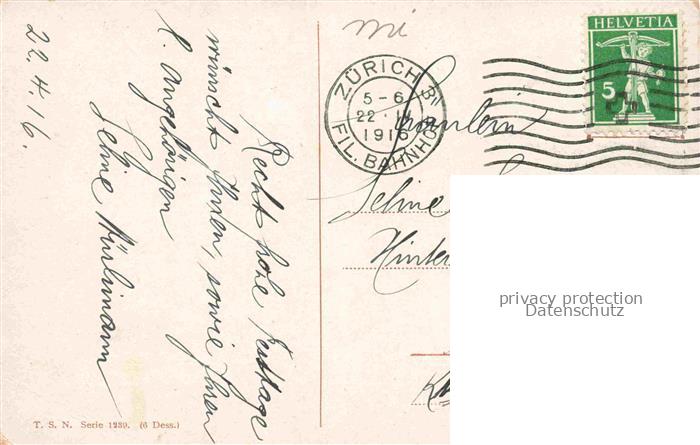 22.4.16.
Recht frohe Festtage
wünscht Ihnen, sowie Ihren
l. Angehörigen
Seline Hürlimann
T. S. N. Serie 1239. (6 Dess.)
mi
ZÜRICH
5-6
1916
FIL. BAHNHOF
HELVETIA
5
Fräulein
Seline
Hinter
privacy protection
Datenschutz